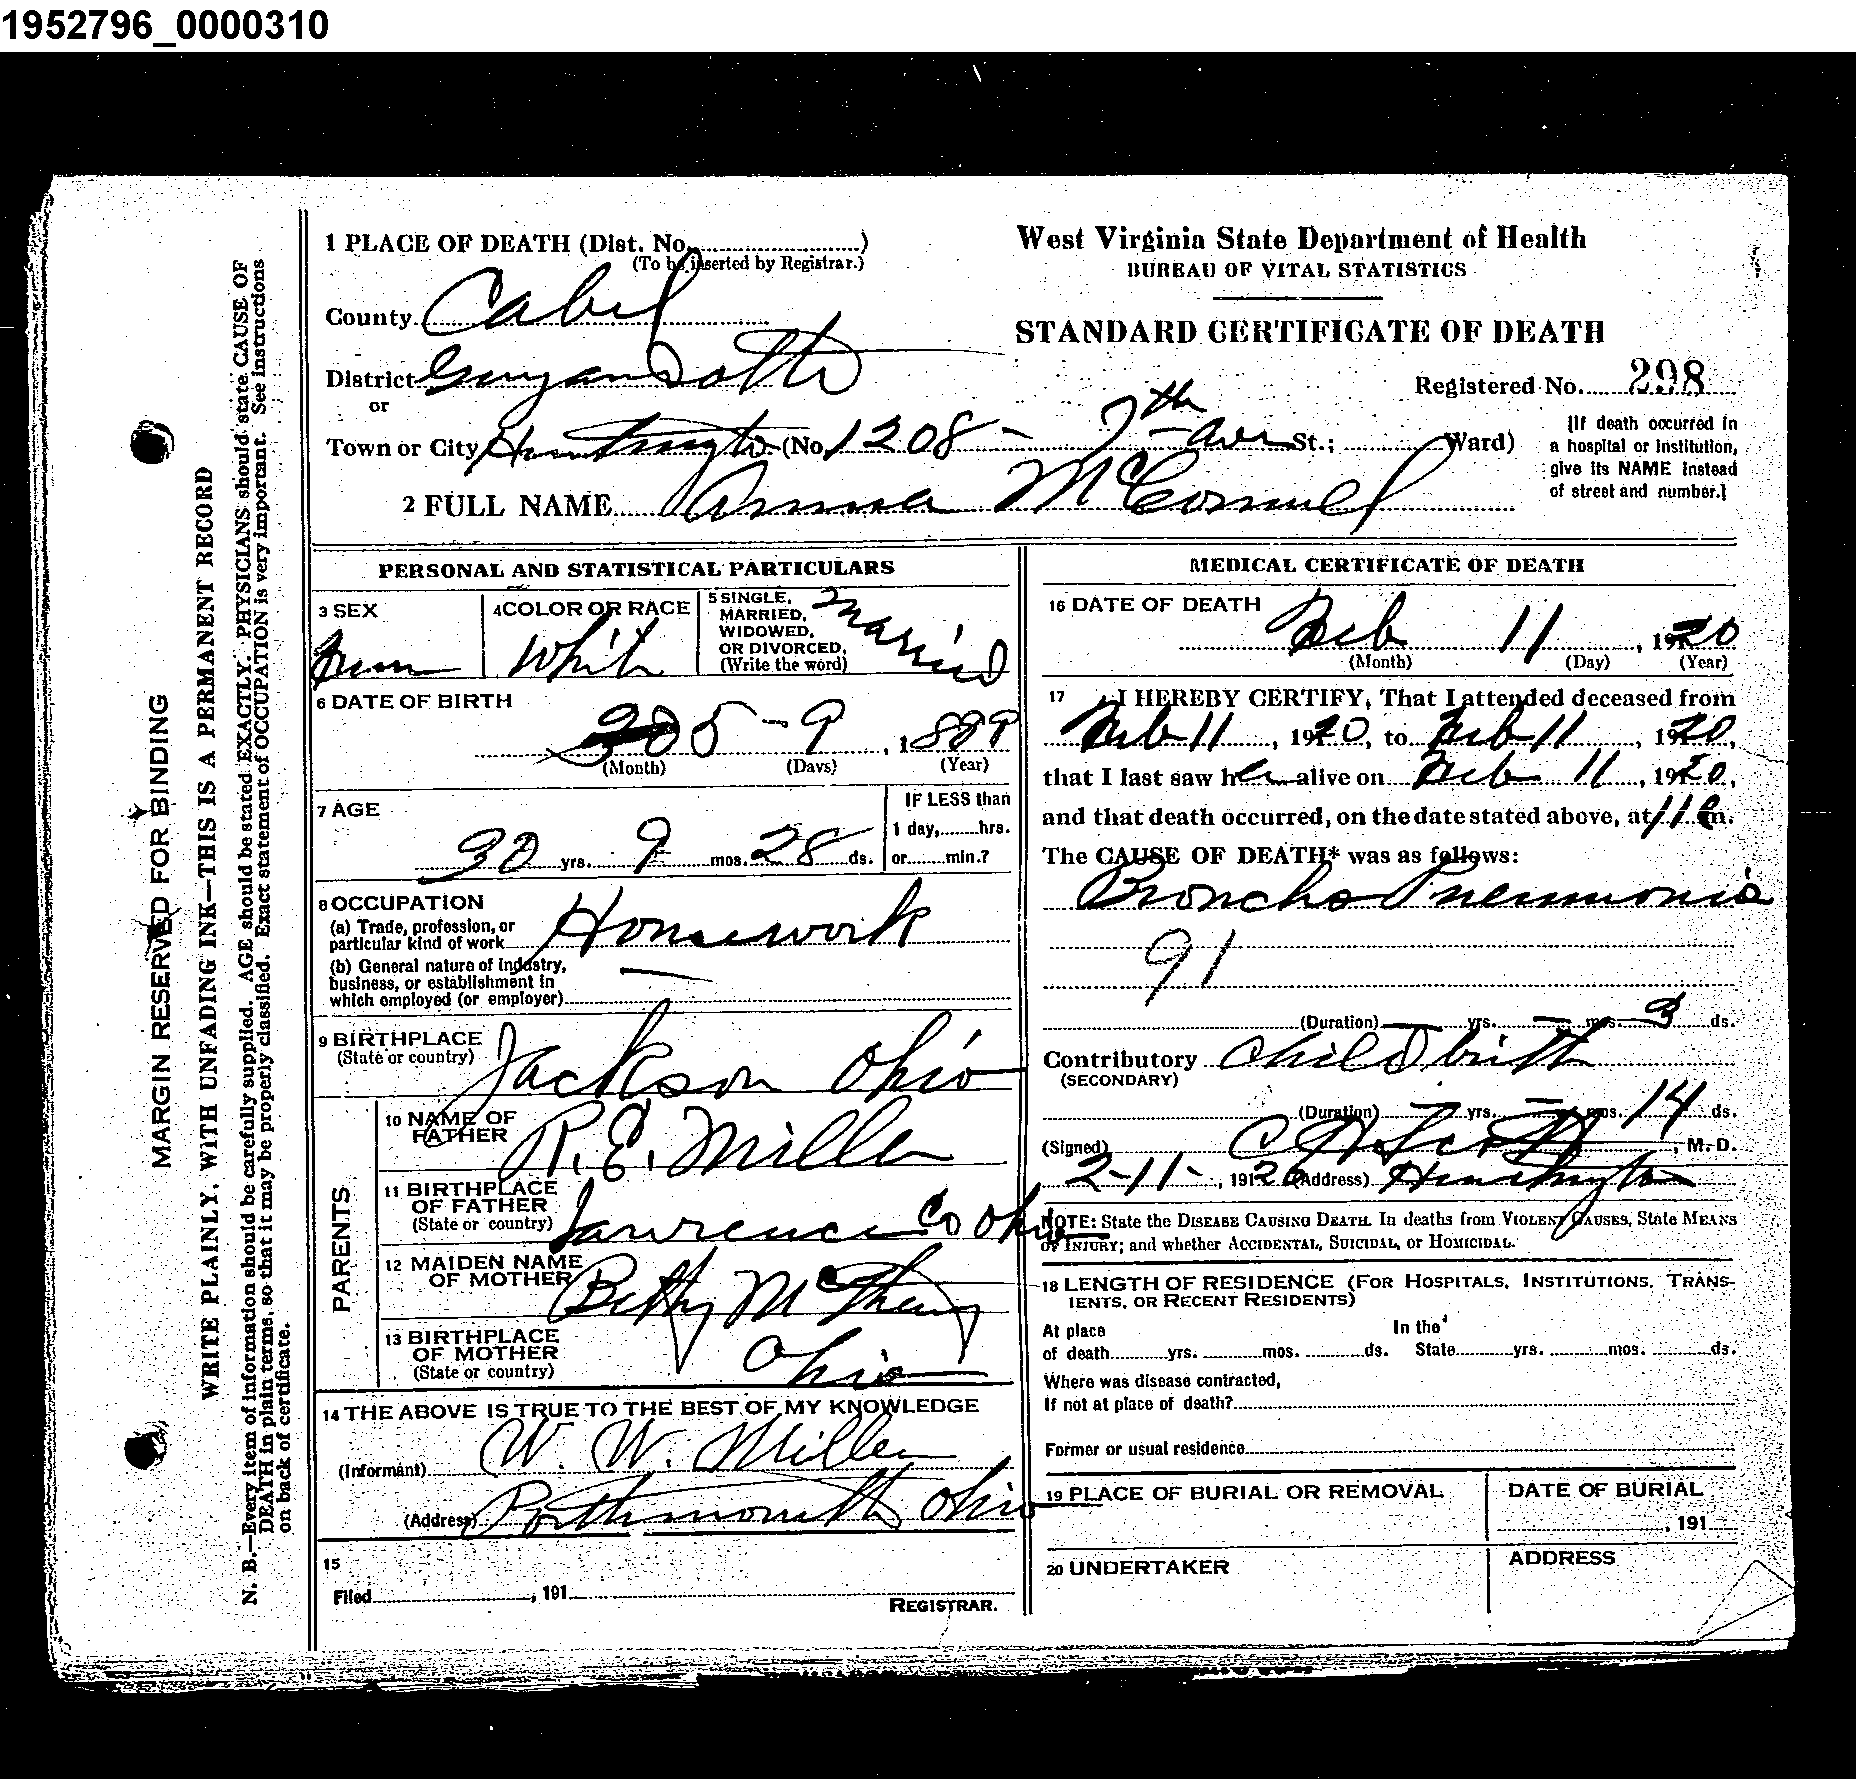 1952796_0000310
1 PLACE OF DEATH (Dist. No. )
(To be inserted by Registrar.)
County Cabel
District Guyandotte
or
Town or City Huntington (No. 1208 - 7th Ave St.; Ward)
2 FULL NAME Anna McConnel
West Virginia State Department of Health
BUREAU OF VITAL STATISTICS
STANDARD CERTIFICATE OF DEATH
Registered No. 298
[If death occurred in
a hospital or institution,
give its NAME instead
of street and number.]
MARGIN RESERVED FOR BINDING
WRITE PLAINLY, WITH UNFADING INK—THIS IS A PERMANENT RECORD
N. B.—Every item of information should be carefully supplied. AGE should be stated EXACTLY. PHYSICIANS should state CAUSE OF
DEATH in plain terms, so that it may be properly classified. Exact statement of OCCUPATION is very important. See instructions
on back of certificate.
PERSONAL AND STATISTICAL PARTICULARS
3 SEX
Fem
4 COLOR OR RACE
White
5 SINGLE,
MARRIED,
WIDOWED,
OR DIVORCED,
(Write the word)
Married
6 DATE OF BIRTH
5 - 9, 1889
(Month) (Days) (Year)
7 AGE
30 yrs. 9 mos. 28 ds.
IF LESS than
1 day, hrs.
or min.?
8 OCCUPATION
(a) Trade, profession, or
particular kind of work Housework
(b) General nature of industry,
business, or establishment in
which employed (or employer)
9 BIRTHPLACE
(State or country) Jackson Ohio
PARENTS
10 NAME OF
FATHER R. E. Miller
11 BIRTHPLACE
OF FATHER
(State or country) Lawrence Co Ohio
12 MAIDEN NAME
OF MOTHER Betty
13 BIRTHPLACE
OF MOTHER
(State or country) Ohio
14 THE ABOVE IS TRUE TO THE BEST OF MY KNOWLEDGE
(Informant) W. W. Miller
(Address) Porthsmouth Ohio
15
Filed , 191
REGISTRAR.
MEDICAL CERTIFICATE OF DEATH
16 DATE OF DEATH
Feb 11, 1920
(Month) (Day) (Year)
17 I HEREBY CERTIFY, That I attended deceased from
Feb 11, 1920, to Feb 11, 1920,
that I last saw her alive on Feb 11, 1920,
and that death occurred, on the date stated above, at 11 m.
The CAUSE OF DEATH* was as follows:
Broncho Pneumonia
91
(Duration) — yrs. — mos. 3 ds.
Contributory Childbirth
(SECONDARY)
(Duration) — yrs. — mos. 14 ds.
(Signed) , M. D.
2-11-, 1920 (Address) Huntington
NOTE: State the DISEASE CAUSING DEATH. In deaths from VIOLENT CAUSES, State MEANS
OF INJURY; and whether ACCIDENTAL, SUICIDAL, or HOMICIDAL.
18 LENGTH OF RESIDENCE (FOR HOSPITALS, INSTITUTIONS, TRANS-
IENTS, OR RECENT RESIDENTS)
At place
of death yrs. mos. ds.
In the
State yrs. mos. ds.
Where was disease contracted,
If not at place of death?
Former or usual residence
19 PLACE OF BURIAL OR REMOVAL
DATE OF BURIAL
, 191
20 UNDERTAKER
ADDRESS